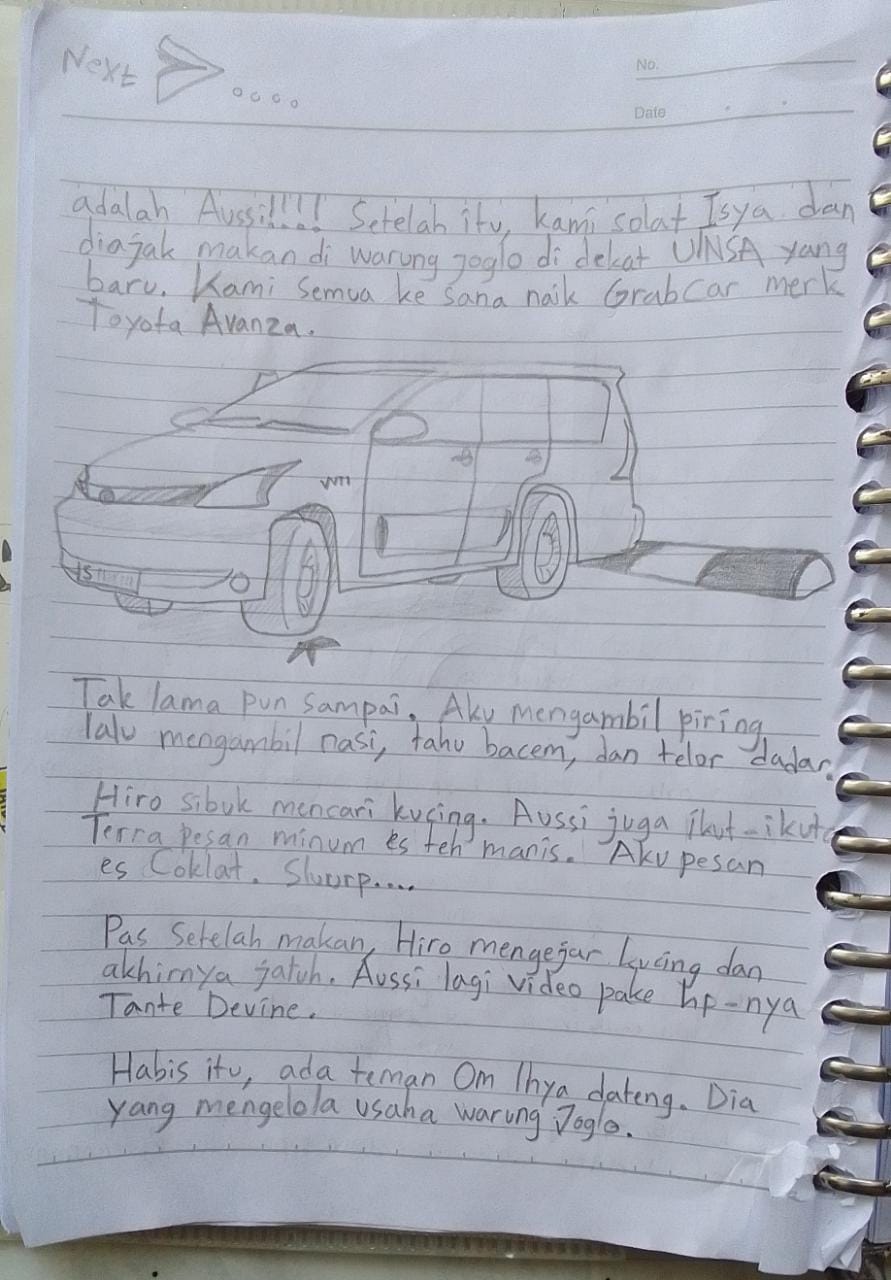 Next ....
No.
Date
adalah Aussi!!!! Setelah itu, kami solat Isya dan
diajak makan di warung joglo di dekat UINSA yang
baru. Kami semua ke sana naik GrabCar merk
Toyota Avanza.
Tak lama pun sampai. Aku mengambil piring
lalu mengambil nasi, tahu bacem, dan telor dadar.
Hiro sibuk mencari kucing. Aussi juga ikut-ikut
Terra pesan minum es teh manis. Aku pesan
es Coklat. Sluurp....
Pas setelah makan, Hiro mengejar kucing dan
akhirnya jatuh. Aussi lagi video pake hp-nya
Tante Devine.
Habis itu, ada teman Om Ihya dateng. Dia
yang mengelola usaha warung Joglo.